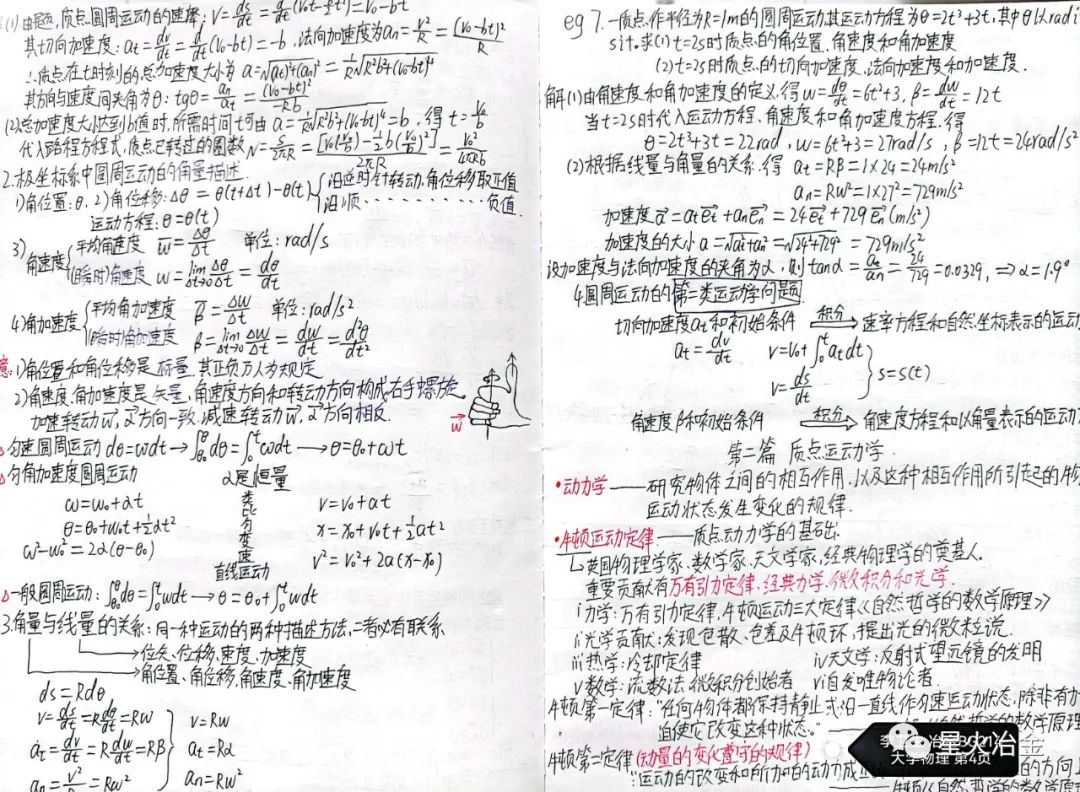 (1)由题,质点圆周运动的速率: v=ds/dt=d/dt(v₀t-½bt²)=v₀-bt
其切向加速度: aₜ=dv/dt=d/dt(v₀-bt)=-b,法向加速度为aₙ=v²/R=(v₀-bt)²/R
∴质点在t时刻的总加速度大小为 a=√(aₜ)²+(aₙ)²=1/R√R²b²+(v₀-bt)⁴
其方向与速度间夹角为θ: tgθ=aₙ/aₜ=(v₀-bt)²/-Rb
(2)总加速度大小达到b值时,所需时间t可由 a=1/R√R²b²+(v₀-bt)⁴=b,得 t=v₀/b
代入路程方程式,质点已转过的圈数 N=s/2πR=[v₀(v₀/b)-½b(v₀/b)²]/2πR=v₀²/4πRb
2.极坐标系中圆周运动的角量描述.
1)角位置:θ. 2)角位移:Δθ=θ(t+Δt)-θ(t) {沿逆时针转动,角位移取正值
沿顺·········负值.
运动方程:θ=θ(t)
3)角速度{平均角速度 w̄=Δθ/Δt 单位:rad/s
(瞬时)角速度 w=lim Δt→0 Δθ/Δt=dθ/dt
4)角加速度{平均角加速度 β̄=Δw/Δt 单位:rad/s²
(瞬时)角加速度 β=lim Δt→0 Δw/Δt=dw/dt=d²θ/dt²
意:1)角位置和角位移是标量,其正负乃人为规定
2)角速度、角加速度是矢量,角速度方向和转动方向构成右手螺旋
加速转动w⃗,α⃗方向一致.减速转动w⃗,α⃗方向相反.
w⃗
△匀速圆周运动 dθ=wdt→∫θ₀^θ dθ=∫₀^t wdt→θ=θ₀+wt
△匀角加速度圆周运动 α是恒量
ω=ω₀+αt 类比匀变速直线运动 v=v₀+at
θ=θ₀+ω₀t+½αt² x=x₀+v₀t+½at²
ω²-ω₀²=2α(θ-θ₀) v²=v₀²+2a(x-x₀)
△一般圆周运动:∫θ₀^θ dθ=∫₀^t wdt→θ=θ₀+∫₀^t wdt
3.角量与线量的关系:同一种运动的两种描述方法,二者必有联系.
位矢、位移、速度、加速度
角位置、角位移、角速度、角加速度
ds=Rdθ
v=ds/dt=Rdθ/dt=Rw v=Rw
aₜ=dv/dt=Rdw/dt=Rβ aₜ=Rα
aₙ=v²/R=Rω² aₙ=RW²
eg 7.一质点作半径为R=1m的圆周运动,其运动方程为θ=2t³+3t.其中θ以rad
s计.求(1)t=2s时质点的角位置、角速度和角加速度
(2)t=2s时质点的切向加速度、法向加速度和加速度.
解(1)由角速度和角加速度的定义,得w=dθ/dt=6t²+3, β=dw/dt=12t
当t=2s时代入运动方程、角速度和角加速度方程.得
θ=2t³+3t=22rad, w=6t²+3=27rad/s, β=12t=24rad/s²
(2)根据线量与角量的关系.得 aₜ=Rβ=1×24=24m/s²
aₙ=RW²=1×27²=729m/s²
加速度a⃗=aₜe⃗ₜ+aₙe⃗ₙ=24e⃗ₜ+729e⃗ₙ(m/s²)
加速度的大小a=√aₜ²+aₙ²=√24²+729²=729m/s²
设加速度与法向加速度的夹角为α,则tanα=aₜ/aₙ=24/729=0.0329,⇒α=1.9°
4.圆周运动的第二类运动学问题
切向加速度aₜ和初始条件 积分→ 速率方程和自然坐标表示的运动
aₜ=dv/dt v=v₀+∫₀^t aₜdt
v=ds/dt } s=s(t)
角速度β和初始条件 积分→ 角速度方程和以角量表示的运动
第二篇 质点运动学.
•动力学——研究物体之间的相互作用,以及这种相互作用所引起的物
运动状态发生变化的规律.
•牛顿运动定律.——质点动力学的基础.
英国物理学家、数学家、天文学家,经典物理学的奠基人.
重要贡献有万有引力定律、经典力学、微积分和光学.
i力学:万有引力定律,牛顿运动三大定律《自然哲学的数学原理》
ii光学贡献:发现色散、色差及牛顿环,提出光的微粒说.
iii热学:冷却定律 iv天文学:反射式望远镜的发明
v数学:流数法、微积分创始者 vi自发唯物论者.
牛顿第一定律:"任何物体都保持静止或沿一直线作匀速运动状态,除非有力
迫使它改变这种状态."
牛顿第二定律(动量的变化遵守的规律)
星火冶金
大学物理 第4页